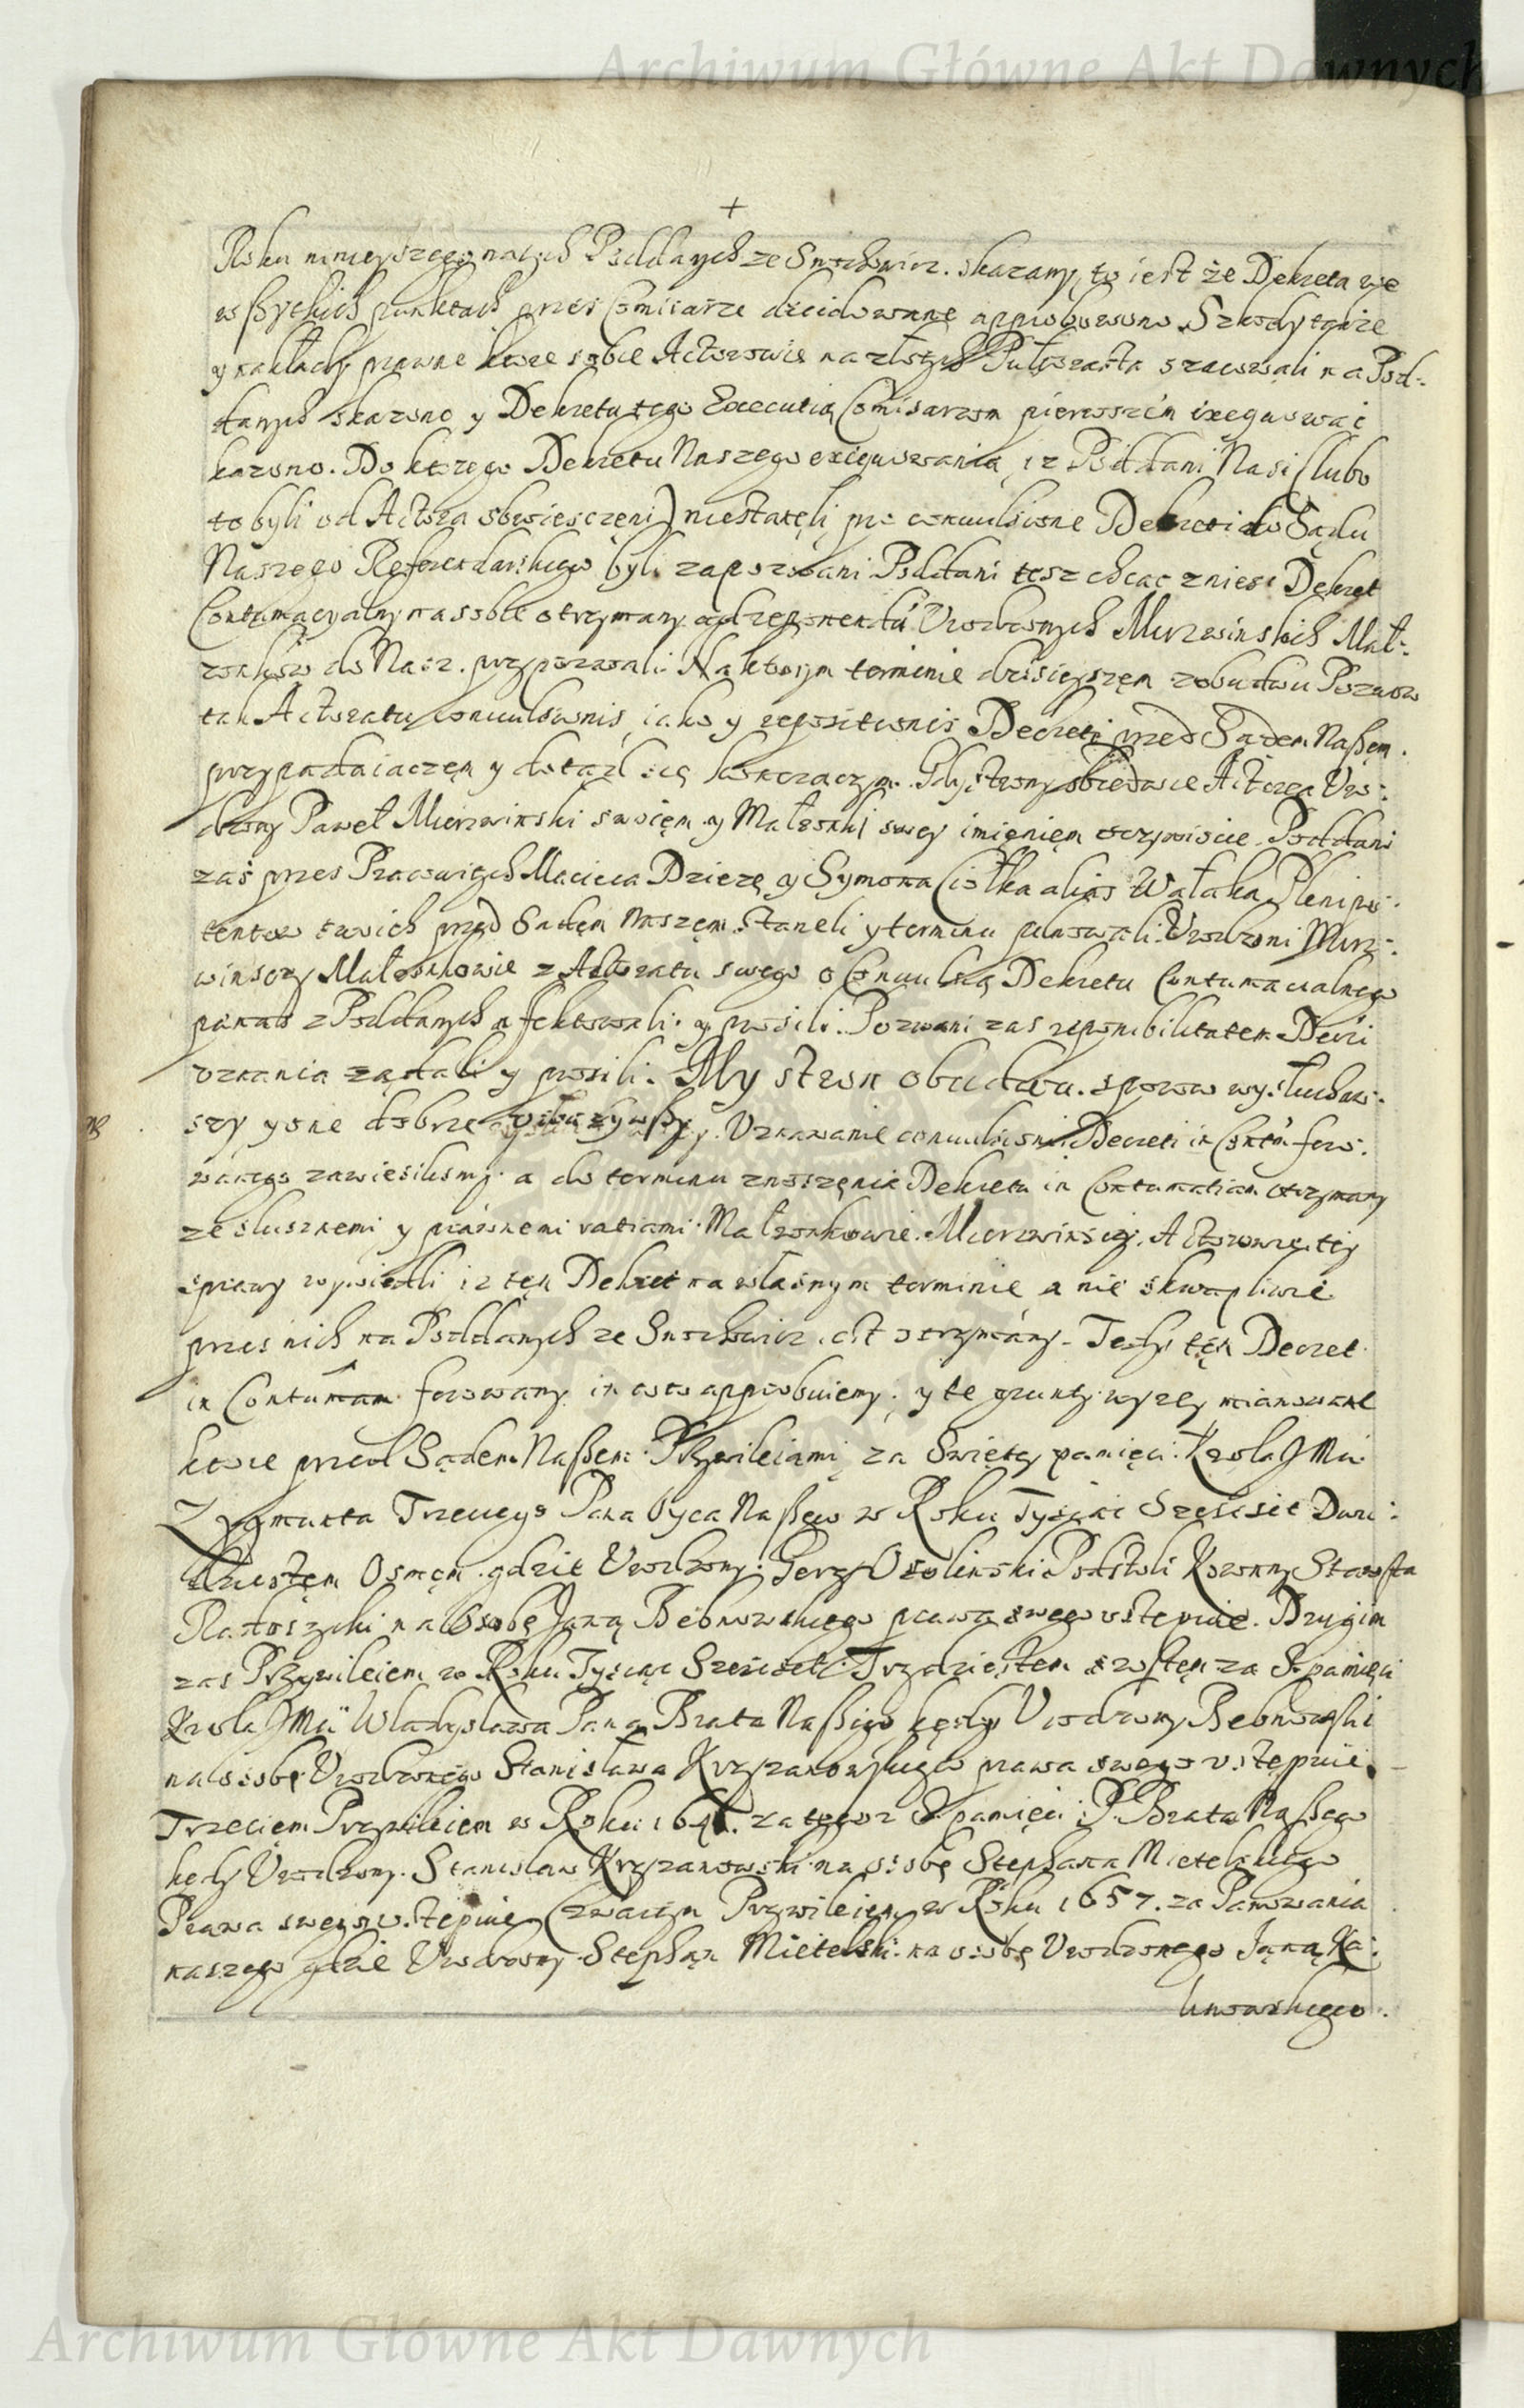 Archiwum Główne Akt Dawnych
+
Roku ninieyszego naszych Poddanych ze Snochowic. skazany, to iest że Dekreta we
wszytkich punktach przes Comisarze decidowane approbowono. Szkody także
y nakłady prawne ktore sobie Actorowie na złotych Pułtorasta szacowali na Pod-
danych skazono y Dekretu tego Executią Comisarzom pierwszem exequować
kazono. Do ktorego Dekretu Naszego exequowania, iz Poddani Nasi (lubo
to byli od Actora obwiesczęni) niestanęli, pro convulsione Decreti do Sądu
Naszego Referendarskiego byli zapozwani Poddani tesz chcąc znieść Dekret
Contumacyalny na sobie otrzymany ad reponendum Urodzonych Mierzwinskich Mał-
zonków do Nasz. przypozwali. Na ktorym terminie dzisieyszem z obudwu Pozwow
tak Actoratu convulsionis, iako y repositionis Decreti przed Sądem Naszem.
przypadaiaczęm y dotąd się konczaczym. Gdy strony obiedwie Actorea Uro-
dzony Paweł Mierzwinski swoięm y Małzonki swey imięnięm oczywiscie. Poddani
zaś przes Pracowitych Macieia Dzieżę y Symona Ciołka alias Wałaka Plenipo-
tentow swoich przed Sądem Naszęm Staneli y terminu pilnowali. Urodzoni Mirz-
winscy Małzonkowie z Actoratu swego o Convulsią Dekretu Contumacialnego
paenas z Poddanych affektowali. y prosili. Pozwani zas reponibilitatem Decreti
uznania ządali y prosili. My stron obudwu. sporow wysłuchaw-
szy y one dobrze uważywszy. Uznawanie convulsionis Decreti in Contum. fero-
wanego zawiesilismy. a do terminu znoszęnia Dekretu in Contumatiam otrzymany
ze slusznemi y prawnemi ratiami Małzonkowie. Mierzwinscy. Actorowie tey
sprawy wywiedli iz tęn Dekret na własnym terminie a nie skwapliwie
przes nich na Poddanych ze Snochowic. iest otrzymany. Tedy tęn Decret
in Contumam ferowany in toto approbuiemy. y te grunty wyzey mianowane
ktore przed Sądem Naszem. Przywileiami za Swiętey pamięci. Krola JMci
Zygmunta Trzeciego Pana Oyca Naszego w Roku Tysiąc Szescset Dwu-
dziestęm Osmęm. gdzie Urodzony. Gerzy Ossolinski Podstoli Koronny Starosta
Radoszycki na Osobę Jana Bebnowskiego prawa swego ustępuie. Drugim
zas Przywileiem w Roku Tysiąc Szescset Trzdziestem szostęm za S. pamięci
Krola JMci Wladysława Pana Brata Naszego kędy Urodzony Bebnowski
na osobę Urodzonego Stanisława Krzyzanowskiego prawa swego ustępuie.
Trzeciem Przywileiem w Roku 164 . za tegoz S. pamięci P. Brata Naszego
kędy Urodzony. Stanisław Krzyzanowski na osobę Stephana Mietelskiego
Prawa swego ustępuie Czwartym Przywileiem w Roku 1657. za Panowania
naszego gdzie Urodzony Stephan Mietelski. na osobę Urodzonego Jana Ka-
linowskiego.
Archiwum Główne Akt Dawnych